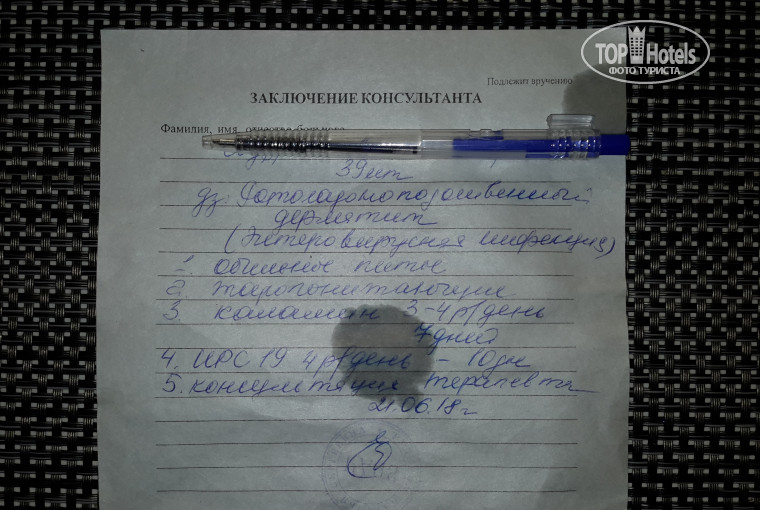 TOP Hotels
ФОТО ТУРИСТА
Подлежит вручению
ЗАКЛЮЧЕНИЕ КОНСУЛЬТАНТА
Фамилия, имя, отчество больного
39 лет
дз: Ротоладомоподошвенный
дерматит
(Энтеровирусная инфекция)
1. обильное питье
2. жаропонижающие
3. каламин 3-4 р/день
7 дней
4. ИРС 19 4 р/день - 10 дн
5. консультация терапевта
21.06.18 г